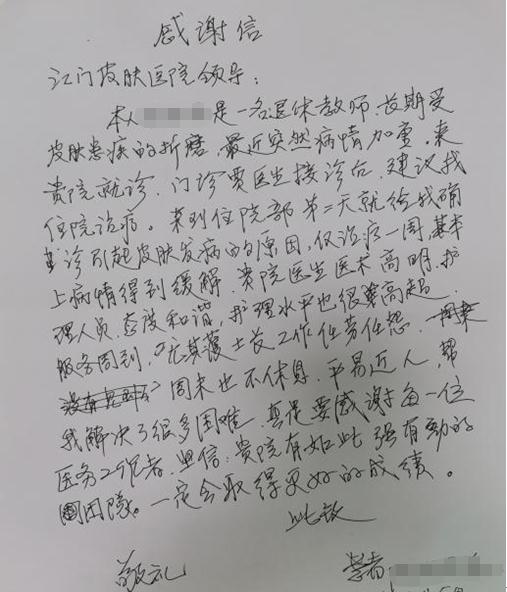 感谢信
江门皮肤医院领导：
本人是一名退休教师，长期受
皮肤患疾的折磨，最近突然病情加重，来
贵院就诊，门诊贾医生接诊后，建议我
住院治疗。来到住院部第二天就给我确
诊引起皮肤发病的原因，仅治疗一周，基本
上病情得到缓解，贵院医生医术高明，护
理人员，态度和谐，护理水平也很高超，
服务周到，尤其护士长工作任劳任怨，
周末也不休息，平易近人，帮
我解决了很多困难，真是要感谢每一位
医务工作者，坚信：贵院有如此强有劲的
团队。一定会取得更好的成绩。
此致
敬礼 患者